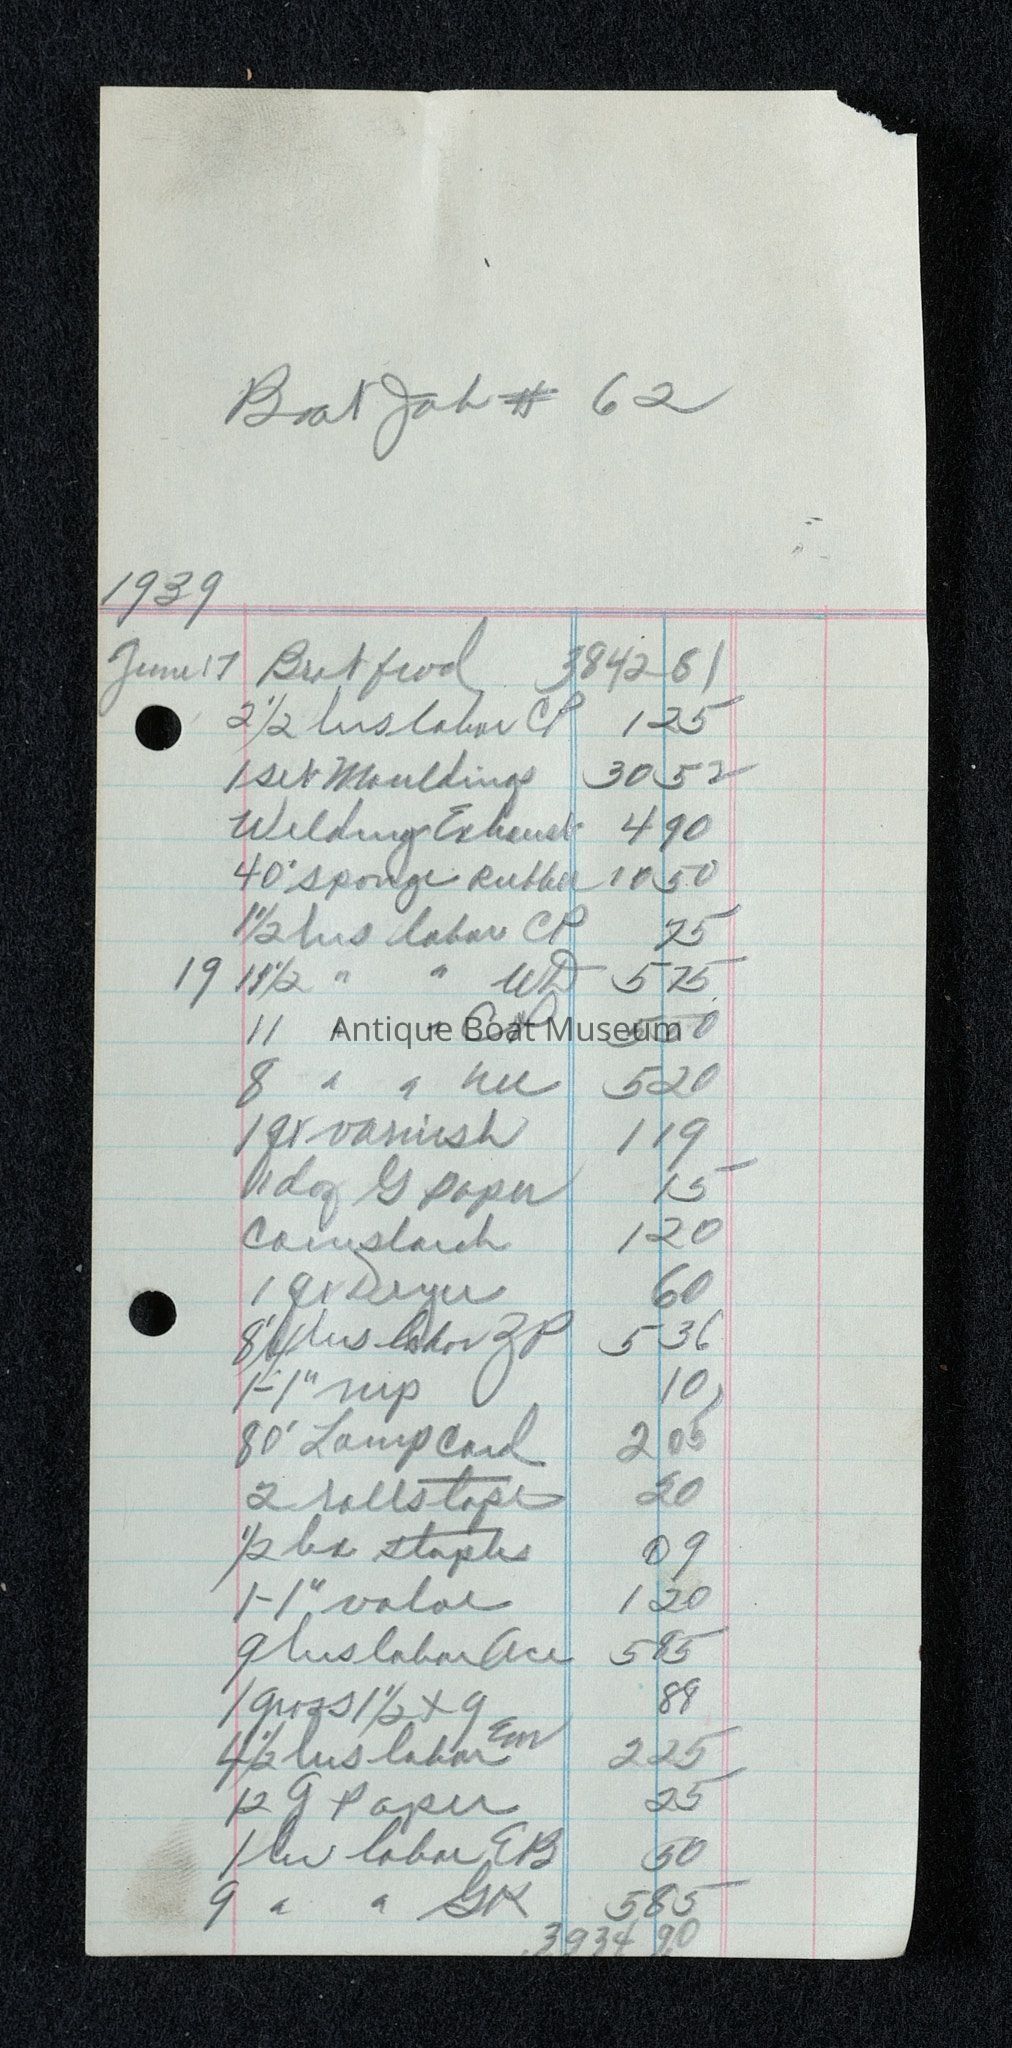 Boat Job # 62
1939
June 17 Brot fwod 3842 61
2 1/2 hrs labor CP 1 25
1 set Mouldings 30 52
Welding Exhaust 4 90
40' sponge Rubber 10 50
1 1/2 hrs labor CP 75
19 11 1/2 " " WD 5 75
11 " " CP 5 50
Antique Boat Museum
8 " " 5 20
1 qt varnish 1 19
doz G paper 15
Cornstarch 1 20
1 qt Dryer 60
8 1/4 hrs labor ZP 5 36
1-1" nip 10
80' Lampcord 2 05
2 rolls tape 20
1/2 bx staples 09
1-1" valve 1 20
9 hrs labor Ace 5 85
1 gross 1 1/2 x 9 89
4 1/2 hrs labor Em 2 25
12 G Paper 25
1 hr labor EB 50
9 " " GK 5 85
3934 90